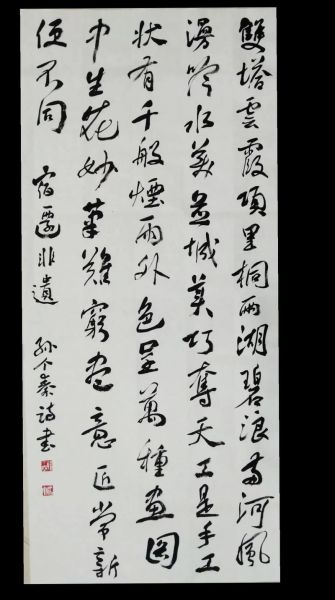 雙塔雲霞項里桐兩湖碧浪河風
漫吟水美城美巧奪天工是手工
狀有千般煙雨外色呈萬種畫圖
中生花妙筆難窮盡意匠常新
便不同 宿遷非遺 孫个秦詩書